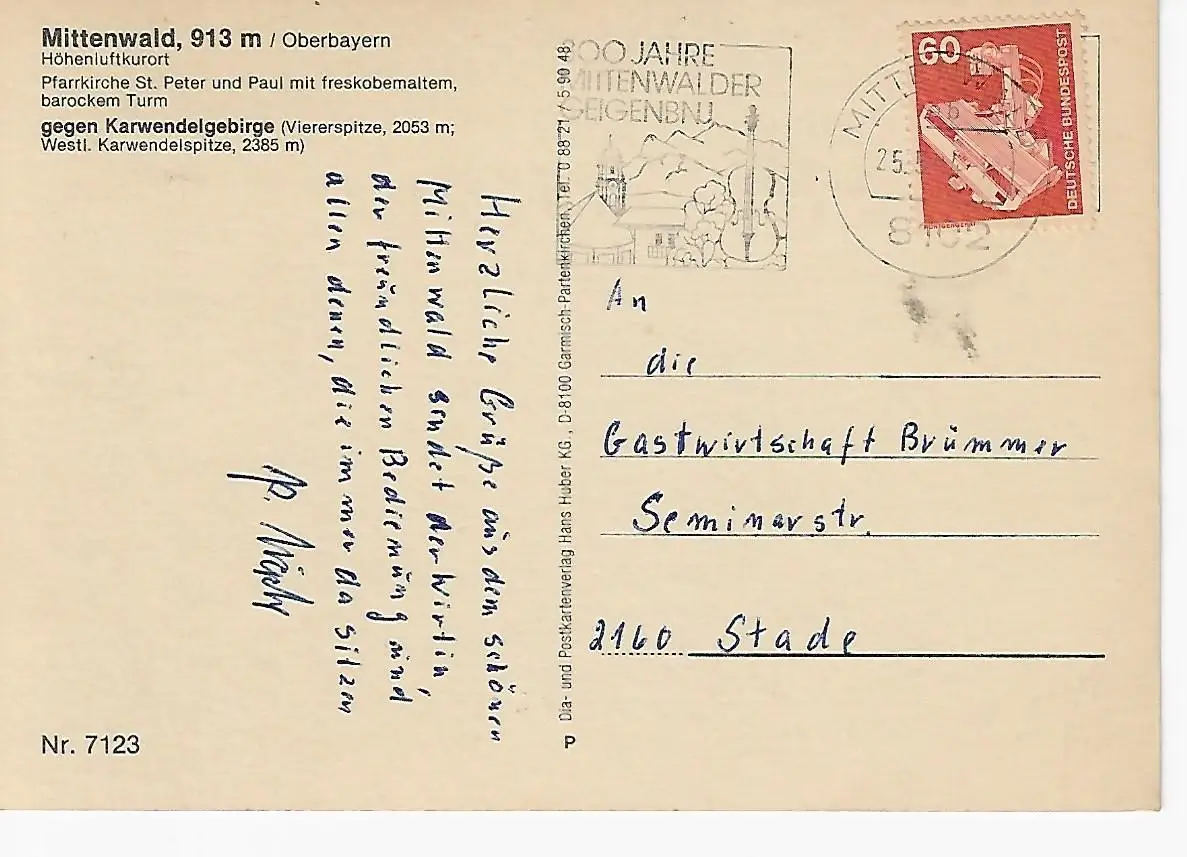 Mittenwald, 913 m / Oberbayern
Höhenluftkurort
Pfarrkirche St. Peter und Paul mit freskobemaltem,
barockem Turm
gegen Karwendelgebirge (Viererspitze, 2053 m;
Westl. Karwendelspitze, 2385 m)
Herzliche Grüße aus dem schönen
Mittenwald sendet der Wirtin,
der freundlichen Bedienung und
allen denen, die immer da sitzen
Nr. 7123
Dia- und Postkartenverlag Hans Huber KG., D-8100 Garmisch-Partenkirchen, Tel. 0 88 21 / 5 90 48
P
300 JAHRE
MITTENWALDER
GEIGENBAU
60
DEUTSCHE BUNDESPOST
8102
An
die
Gastwirtschaft Brümmer
Seminarstr.
2160 Stade